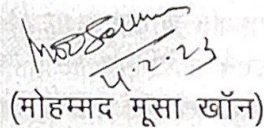 4.2.23
(मोहम्मद मूसा खॉन)